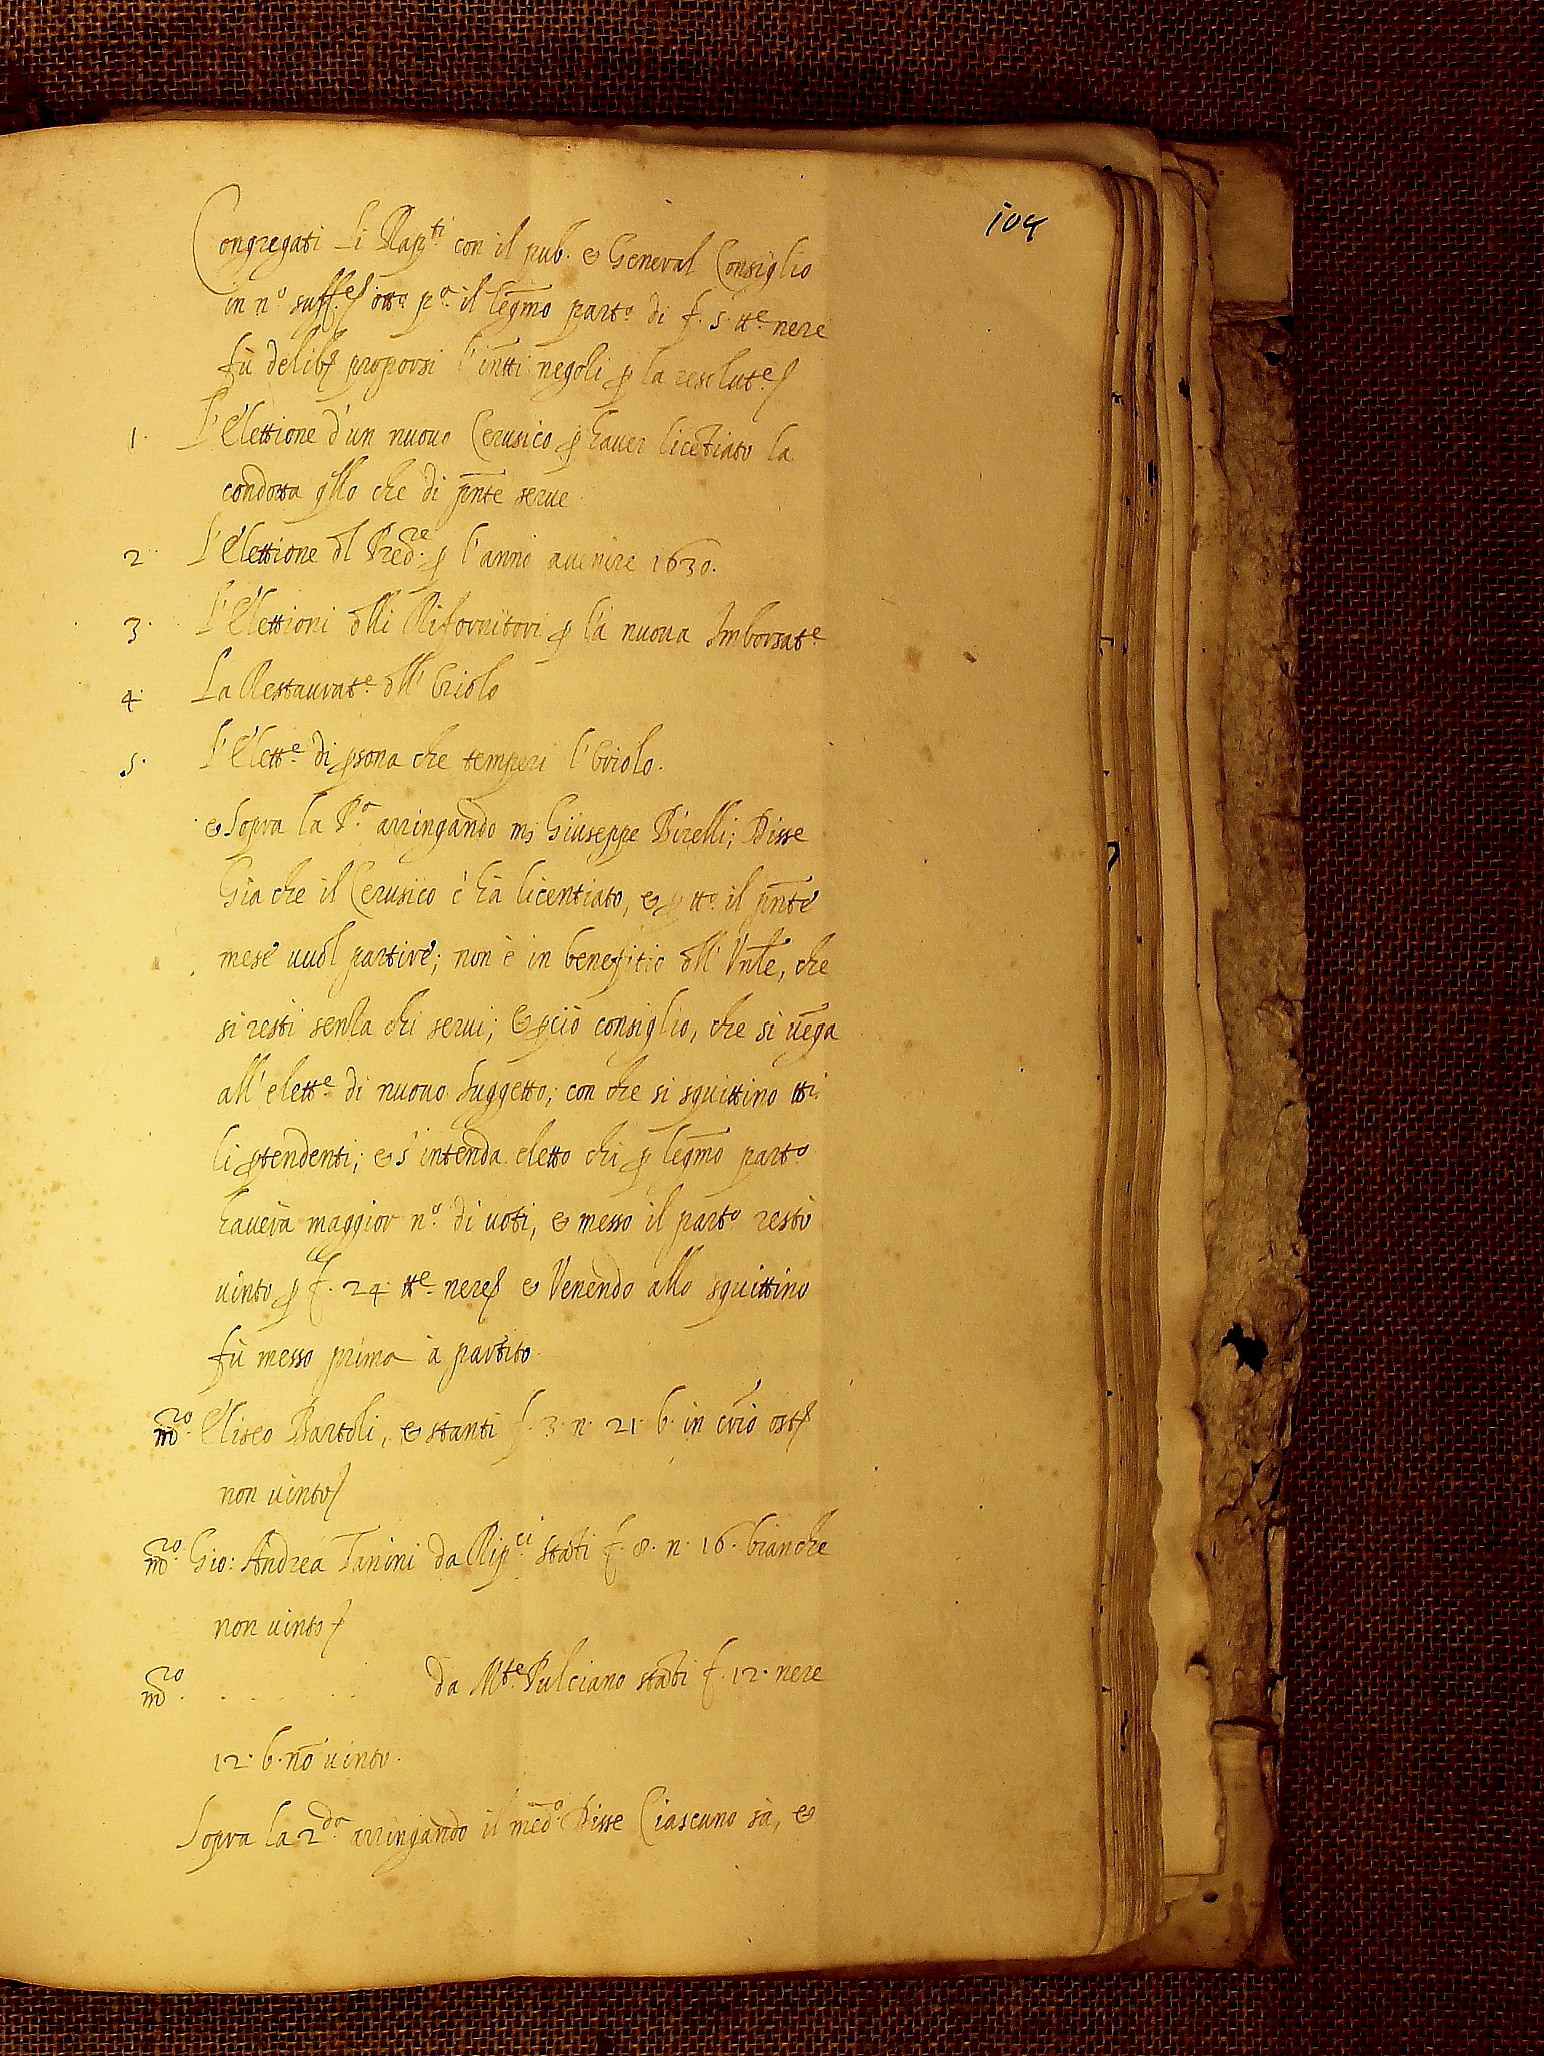 104
Congregati li Rap.ti con il pub. & General Consiglio
in n.o suff.e ott.o p.a il legmo part.o di f. 5. tt.e nere
fù delib. proporsi l'intti negoti p la resolut.e
1. L'Elettione d'un nuovo Cerusico p haver licetiato la
condotta qllo che di pnte serve
2. L'Elettione dl Pred.re p l'anno avenire 1630.
3. L'Elettioni dlli Rifornitori p la nuova Imborsat.e
4. La Restaurat.e dll' Oriolo
5. L'Elett.e di psona che temperi l'Oriolo.
& Sopra la P.a arringando ms Giuseppe Birelli; Disse
Già che il Cerusico c'hà licentiato, & p tt.o il pnte
mese vuol partire; non è in benefitio dll' Vnte, che
si resti senza chi servi; & pciò consiglio, che si vega
all'elett.e di nuovo suggetto; con che si squittino tti
li ptendenti; & s'intenda eletto chi p legmo part.o
haverà maggior n.o di voti, & messo il part.o restò
vinto p f. 24 tt.e nere & Venendo allo squittino
fù messo prima à partito
m.ro Eliseo Bartoli, & stanti f. 3. n. 21. b. in crio ost.
non vinto
m.ro Gio: Andrea Tanini da Rip.ci stati f. 8. n. 16. bianche
non vinto
m.ro . . . . . da M.te Pulciano stati f. 12. nere
12. b. nō vinto.
Sopra la 2.da arringando il med.o Disse Ciascuno sà, &